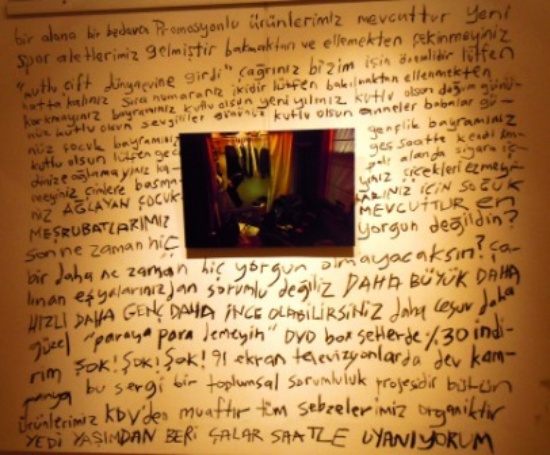 bir alana bir bedava Promosyonlu ürünlerimiz mevcuttur yeni
spor aletlerimiz gelmiştir bakmaktan ve ellemekten çekinmeyiniz
"mutlu çift dünyaevine girdi" çağrınız bizim için önemlidir lütfen
hatta kalınız sıra numaranız ikidir lütfen bakılmaktan ellenmekten
korkmayınız bayramınız kutlu olsun yeni yılınız kutlu olsun doğum günü-
nüz kutlu olsun sevgililer gününüz kutlu olsun anneler babalar gü-
nüz çocuk bayramınız gençlik bayramınız
kutlu olsun lütfen geç geç saatte kendi ken-
dinize ağlamayınız ka- palı alanda sigara iç-
meyiniz çimlere basma- yınız çiçekleri ezmeyi-
niz AĞLAYAN ÇOCUK- LARINIZ İÇİN SOĞUK
MEŞRUBATLARIMIZ MEVCUTTUR en
son ne zaman hiç yorgun değildin?
bir daha ne zaman hiç yorgun olmayacaksın? ça-
lınan eşyalarınızdan sorumlu değiliz DAHA BÜYÜK DAHA
HIZLI DAHA GENÇ DAHA İNCE OLABİLİRSİNİZ daha cesur daha
güzel "paraya para demeyin" DVD box setlerde %30 indi-
rim ŞOK! ŞOK! ŞOK! 91 ekran televizyonlarda dev kam-
panya bu sergi bir toplumsal sorumluluk projesidir bütün
ürünlerimiz KDV'den muaftır tüm sebzelerimiz organiktir
YEDİ YAŞIMDAN BERİ ÇALAR SAATLE UYANIYORUM